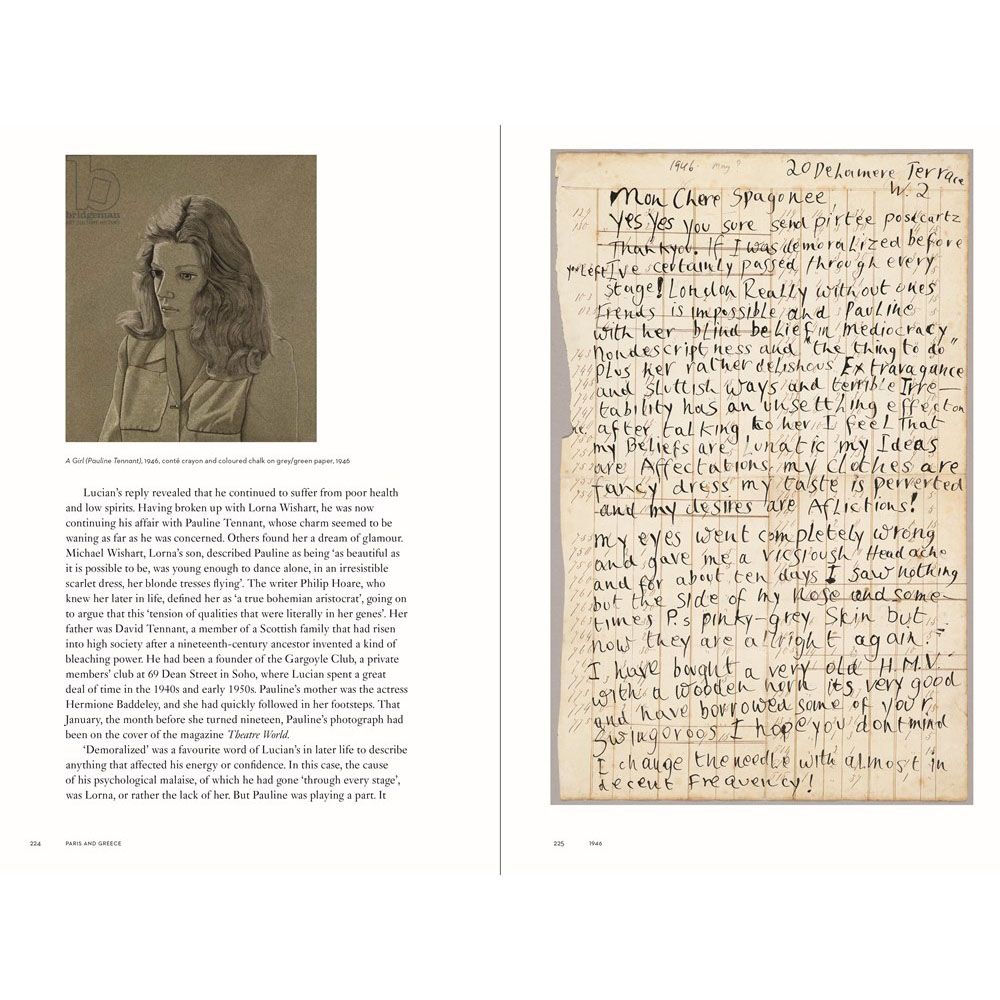 b
bridgeman
A Girl (Pauline Tennant), 1946, conté crayon and coloured chalk on grey/green paper, 1946
Lucian's reply revealed that he continued to suffer from poor health
and low spirits. Having broken up with Lorna Wishart, he was now
continuing his affair with Pauline Tennant, whose charm seemed to be
waning as far as he was concerned. Others found her a dream of glamour.
Michael Wishart, Lorna's son, described Pauline as being 'as beautiful as
it is possible to be, was young enough to dance alone, in an irresistible
scarlet dress, her blonde tresses flying'. The writer Philip Hoare, who
knew her later in life, defined her as 'a true bohemian aristocrat', going on
to argue that this 'tension of qualities that were literally in her genes'. Her
father was David Tennant, a member of a Scottish family that had risen
into high society after a nineteenth-century ancestor invented a kind of
bleaching power. He had been a founder of the Gargoyle Club, a private
members' club at 69 Dean Street in Soho, where Lucian spent a great
deal of time in the 1940s and early 1950s. Pauline's mother was the actress
Hermione Baddeley, and she had quickly followed in her footsteps. That
January, the month before she turned nineteen, Pauline's photograph had
been on the cover of the magazine Theatre World.
'Demoralized' was a favourite word of Lucian's in later life to describe
anything that affected his energy or confidence. In this case, the cause
of his psychological malaise, of which he had gone 'through every stage',
was Lorna, or rather the lack of her. But Pauline was playing a part. It
224 PARIS AND GREECE
1946 May ?
20 Delamere Terrace
W. 2
Mon Chere Spagonee,
yes yes you sure send pirtee postcartz
Thankyou. If I was demoralized before
you left I've certainly passed through every
stage! London Really without ones
friends is impossible and Pauline
with her blind belief in mediocracy
nondescriptness and "the thing to do"
plus her rather delishous Extravagance
and sluttish ways and terrible Irre-
tability has an unsettling effect on
me. after talking to her I feel That
my Beliefs are Lunatic my Ideas
are Affectations my clothes are
fancy dress my taste is perverted
and my desires are Aflictions!
my eyes went completely wrong
and gave me a vicsioush Headache
and for about ten days I saw nothing
but the side of my nose and some-
times P.s pinky-grey Skin but
now they are allright again.
I have bought a very old H.M.V.
with a wooden horn its very good
and have borrowed some of your
Swingoroos I hope you dont mind
I change the needle with almost in
decent Frequency!
225 1946